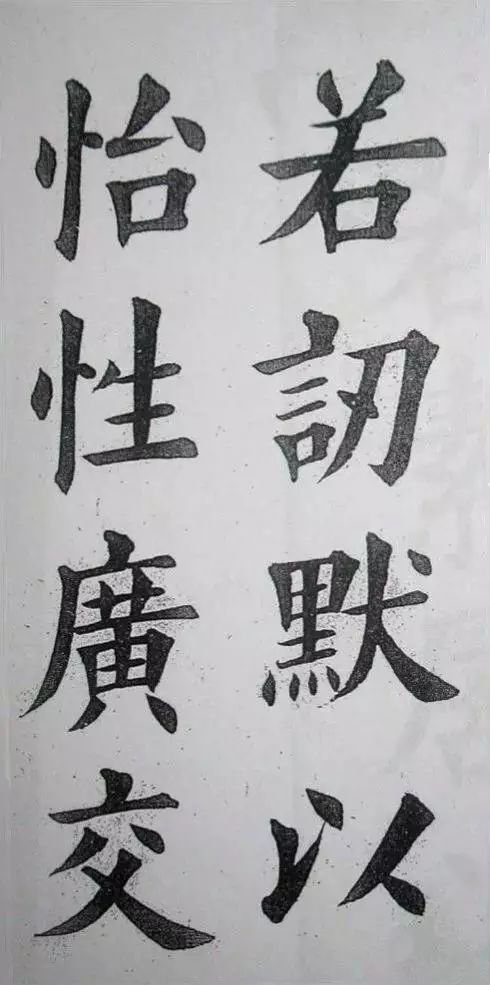 若訒默以
怡性廣交